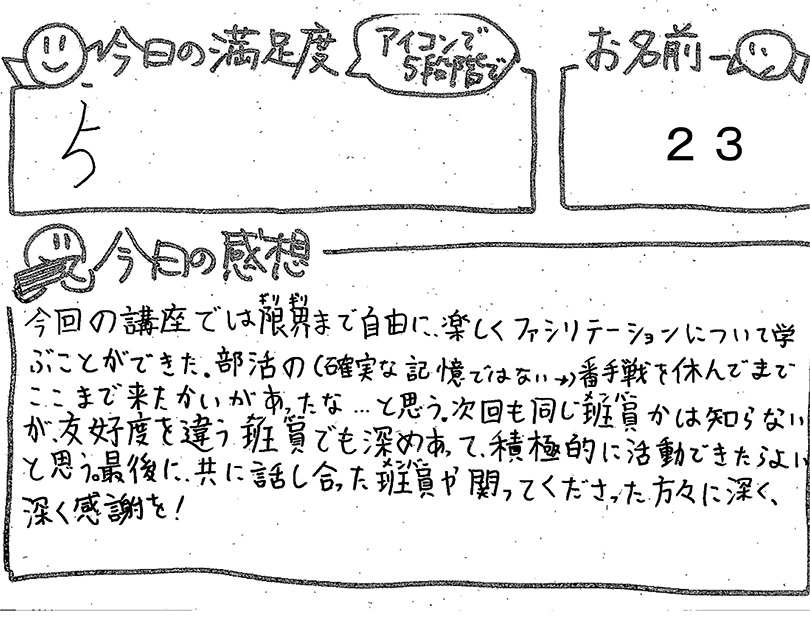 今日の満足度
アイコンで
5段階で
お名前
5
23
今日の感想
ギリギリ
今回の講座では限界まで自由に、楽しくファシリテーションについて学
ぶことができた。部活の(確実な記憶ではない→)番手戦を休んでまで
ここまで来たかいがあったな…と思う。次回も同じ班員かは知らない
が、友好度を違う班員でも深めあって、積極的に活動できたらよい
と思う。最後に、共に話し合った班員や関ってくださった方々に深く、
深く感謝を!